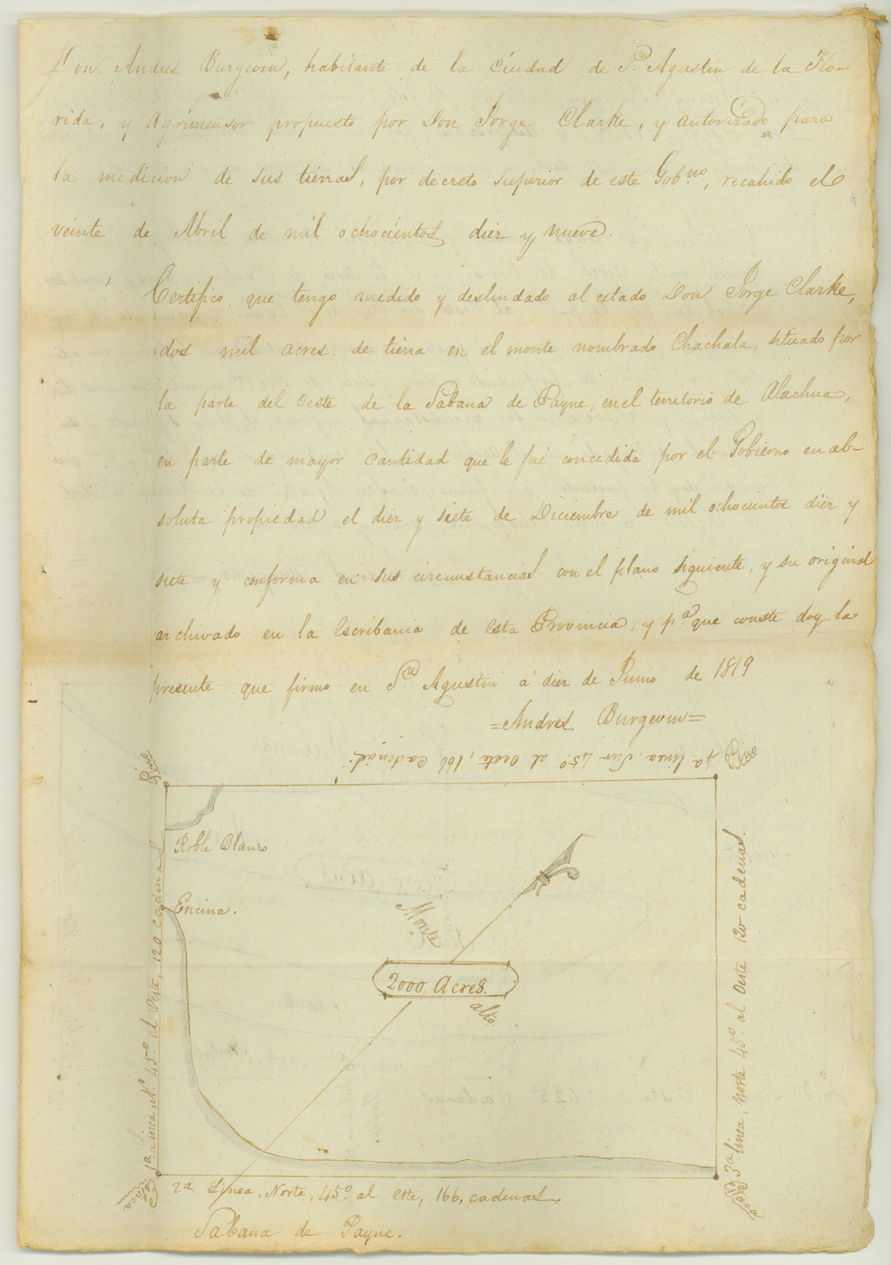 Don Andres Burgevin, habitante de la Ciudad de Sn. Agustin de la Flo-
rida, y Agrimensor propuesto por Don Jorge Clarke, y autorizado para
la medicion de sus tierras, por decreto superior de este Gobno, recahido el
veinte de Abril de mil ochocientos diez y nueve.
Certifico que tengo medido y deslindado al citado Don Jorge Clarke,
dos mil acres de tierra en el monte nombrado Chachala, situado por
la parte del Oeste de la Sabana de Payne, en el territorio de Alachua,
en parte de mayor cantidad que le fué concedida por el Gobierno en ab-
soluta propiedad el diez y siete de Diciembre de mil ochocientos diez y
siete y conforma en sus circunstancias con el plano siguiente, y su original
archivado en la Escribania de esta Provincia, y pa. que conste doy la
presente que firmo en Sn. Agustin á diez de Junio de 1819
=Andres Burgevin=
4a. linea, Sur 45o. al Oeste, 166, Cadenas.
Pino
Roble Blanco
Encina.
Monte
2000. Acres.
alto.
1a. Linea, N. 45o. al Oeste, 120 cadenas
3a. linea, norte 45o. al Oeste 120 cadenas.
2a. Linea, Norte, 45o. al este, 166, cadenas,
Sabana de Payne.